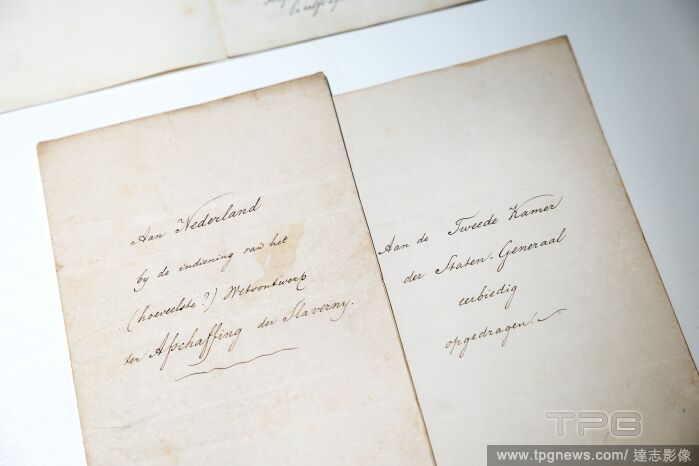 Aan Nederland
by de indiening van het
(hoeveelste?) Wetsontwerp
ter Afschaffing der Slaverny.
Aan de Tweede Kamer
der Staten-Generaal
eerbiedig
opgedragen!
TPG
www.tpgnews.com/ 達志影像